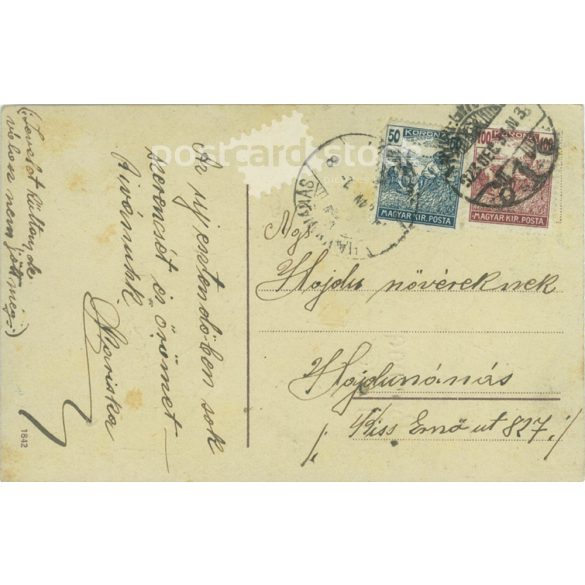 (Levelet küldtem, de
válasz nem jött még.)
Az uj esztendőben sok
szerencsét és örömet
kivánunk
Mariska
1842
50 KORONA
MAGYAR KIR. POSTA
100 KORONA
MAGYAR KIR. POSTA
HAJDUNÁNÁS
Ngs
Hajdu nővéreknek
Hajdunánás
Kiss Ernő ut 827.
postcard-stock